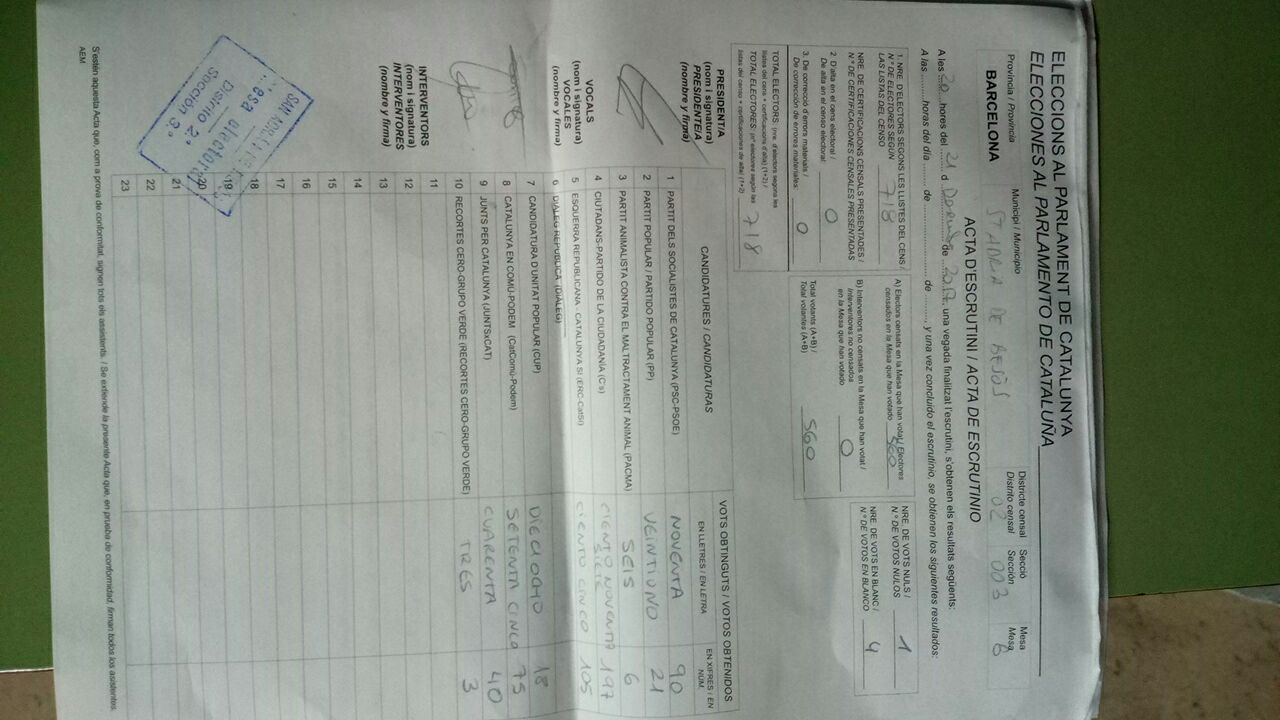 ELECCIONS AL PARLAMENT DE CATALUNYA
ELECCIONES AL PARLAMENTO DE CATALUÑA
ACTA D'ESCRUTINI / ACTA DE ESCRUTINIO
Província / Provincia
BARCELONA
Municipi / Municipio
ST ADRIÀ DE BESÒS
Districte censal
Distrito censal
02
Secció
Sección
003
Mesa
Mesa
B
A les 20 hores del 21 d de 2017 una vegada finalitzat l'escrutini, s'obtenen els resultats següents:
A las ........ horas del día ........ de ........ de ........, y una vez concluido el escrutinio, se obtienen los siguientes resultados:
1. NRE. D'ELECTORS SEGONS LES LLISTES DEL CENS /
N.º DE ELECTORES SEGÚN
LAS LISTAS DEL CENSO 718
NRE. DE CERTIFICACIONS CENSALS PRESENTADES /
N.º DE CERTIFICACIONES CENSALES PRESENTADAS
2. D'alta en el cens electoral /
De alta en el censo electoral: 0
3. De correcció d'errors materials /
De corrección de errores materiales: 0
TOTAL ELECTORS: (nre. d'electors segons les
llistes del cens + certificacions d'alta) (1+2) /
TOTAL ELECTORES: (nº electores según las
listas del censo + certificaciones de alta) (1+2) 718
A) Electors censats en la Mesa que han votat / Electores
censados en la Mesa que han votado 560
B) Interventors no censats en la Mesa que han votat /
Interventores no censados
en la Mesa que han votado 0
Total votants (A+B) /
Total votantes (A+B) 560
NRE. DE VOTS NULS /
N.º DE VOTOS NULOS 1
NRE. DE VOTS EN BLANC /
N.º DE VOTOS EN BLANCO 4
CANDIDATURES / CANDIDATURAS
VOTS OBTINGUTS / VOTOS OBTENIDOS
EN LLETRES / EN LETRA
EN XIFRES / EN NÚM.
1 PARTIT DELS SOCIALISTES DE CATALUNYA (PSC-PSOE) NOVENTA 90
2 PARTIT POPULAR / PARTIDO POPULAR (PP) VEINTIUNO 21
3 PARTIT ANIMALISTA CONTRA EL MALTRACTAMENT ANIMAL (PACMA) SEIS 6
4 CIUTADANS-PARTIDO DE LA CIUDADANÍA (C's) CIENTO NOVENTA SIETE 197
5 ESQUERRA REPUBLICANA - CATALUNYA SÍ (ERC-CatSí) CIENTO CINCO 105
6 DIÀLEG REPUBLICÀ (DIÀLEG)
7 CANDIDATURA D'UNITAT POPULAR (CUP) DIECIOCHO 18
8 CATALUNYA EN COMÚ-PODEM (CatComú-Podem) SETENTA CINCO 75
9 JUNTS PER CATALUNYA (JUNTSxCAT) CUARENTA 40
10 RECORTES CERO-GRUPO VERDE (RECORTES CERO-GRUPO VERDE) TRES 3
11
12
13
14
15
16
17
18
19
20
21
22
23
PRESIDÈNCIA
(nom i signatura)
PRESIDENCIA
(nombre y firma)
VOCALS
(nom i signatura)
VOCALES
(nombre y firma)
INTERVENTORS
(nom i signatura)
INTERVENTORES
(nombre y firma)
SANT ADRIÀ
Mesa electoral
Distrito 2º
Sección 3ª
S'estén aquesta Acta que, com a prova de conformitat, signen tots els assistents. / Se extiende la presente Acta que, en prueba de conformidad, firman todos los asistentes.
AEM